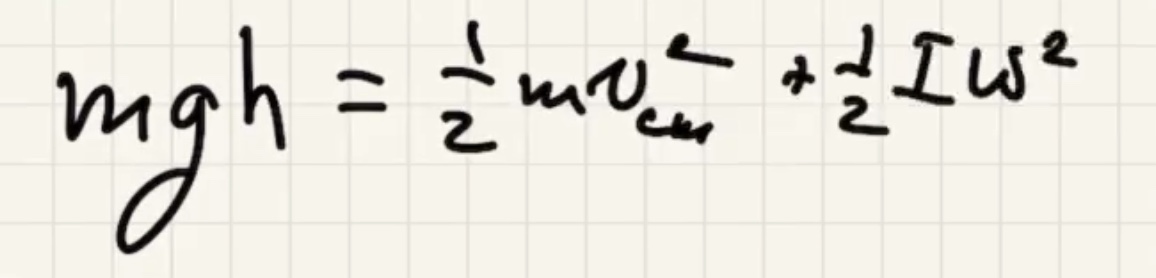 mgh = 1/2 mv_cm^2 + 1/2 Iω^2